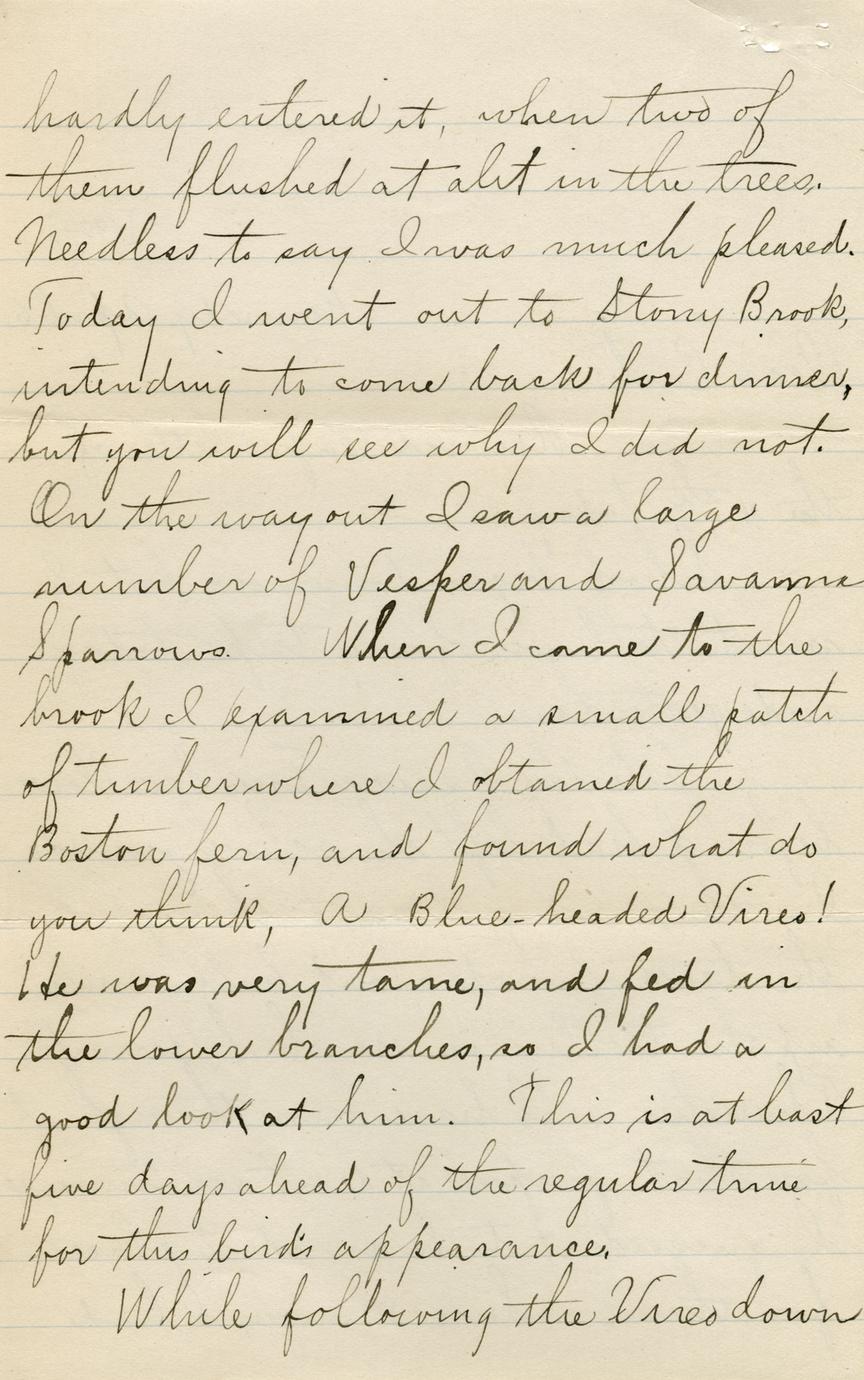 hardly entered it, when two of
them flushed at alit in the trees.
Needless to say I was much pleased.
Today I went out to Stony Brook,
intending to come back for dinner,
but you will see why I did not.
On the way out I saw a large
number of Vesper and Savanna
Sparrows. When I came to the
brook I examined a small patch
of timber where I obtained the
Boston fern, and found what do
you think, A Blue-headed Vireo!
He was very tame, and fed in
the lower branches, so I had a
good look at him. This is at least
five days ahead of the regular time
for this bird's appearance.
While following the Vireo down